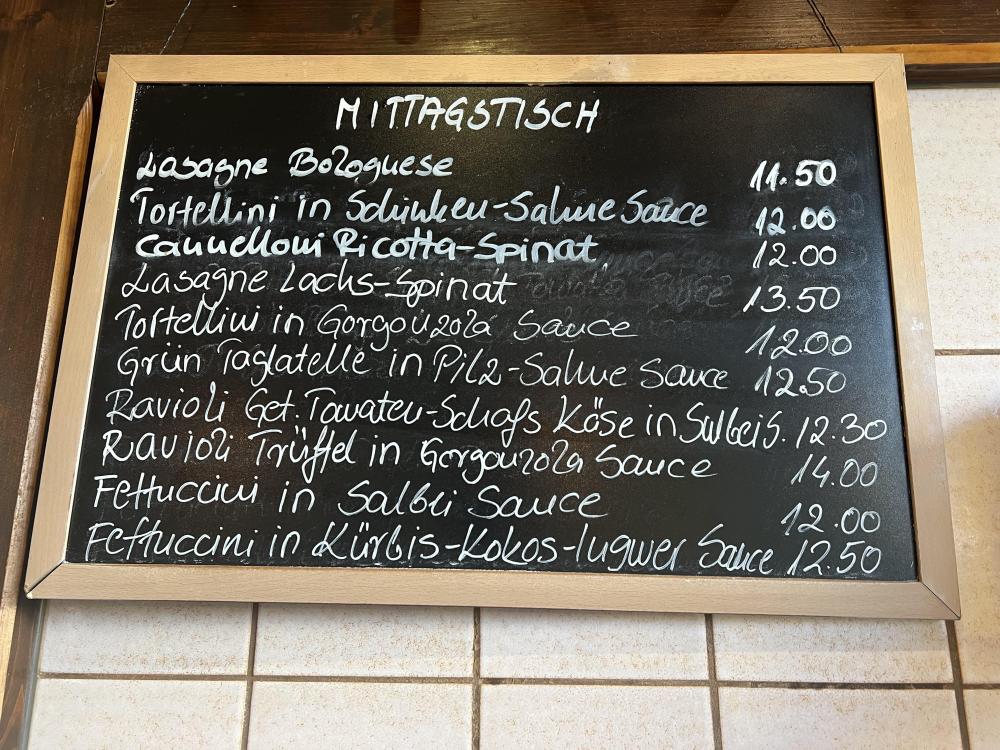 MITTAGSTISCH
Lasagne Bolognese 11.50
Tortellini in Schinken-Sahne Sauce 12.00
Cannelloni Ricotta-Spinat 12.00
Lasagne Lachs-Spinat 13.50
Tortellini in Gorgonzola Sauce 12.00
Grün Taglatelle in Pilz-Sahne Sauce 12.50
Ravioli Get. Tomaten-Schafs Käse in SalbeiS. 12.30
Ravioli Trüffel in Gorgonzola Sauce 14.00
Fettuccini in Salbei Sauce 12.00
Fettuccini in Kürbis-Kokos-Ingwer Sauce 12.50